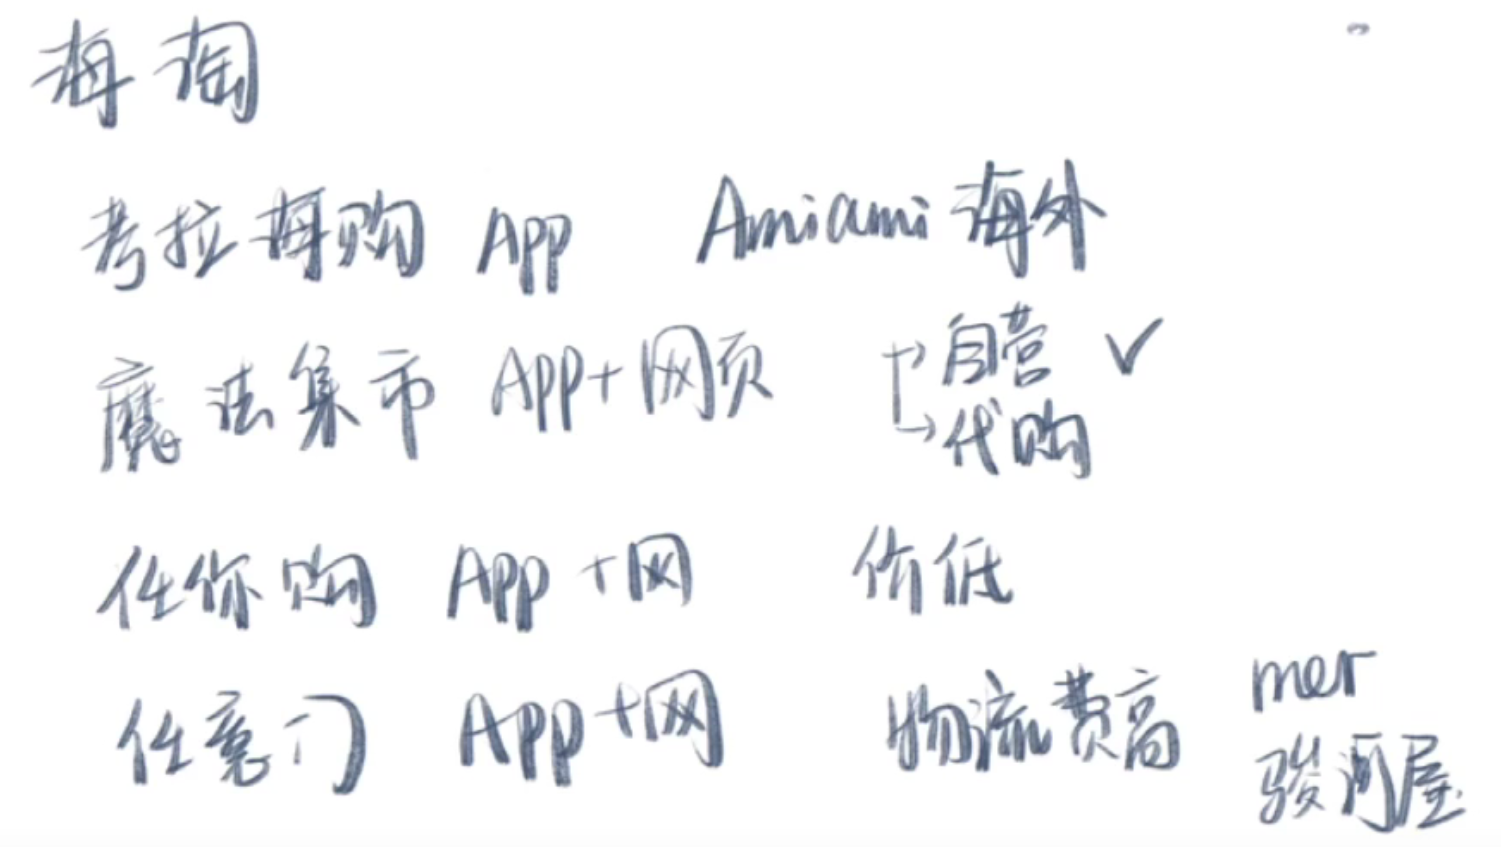 海淘
考拉海购 App Amiami 海外
魔法集市 App+网页 自营 ✓
代购
任你购 App+网 价低
任意门 App+网 物流费高 mer
骏河屋